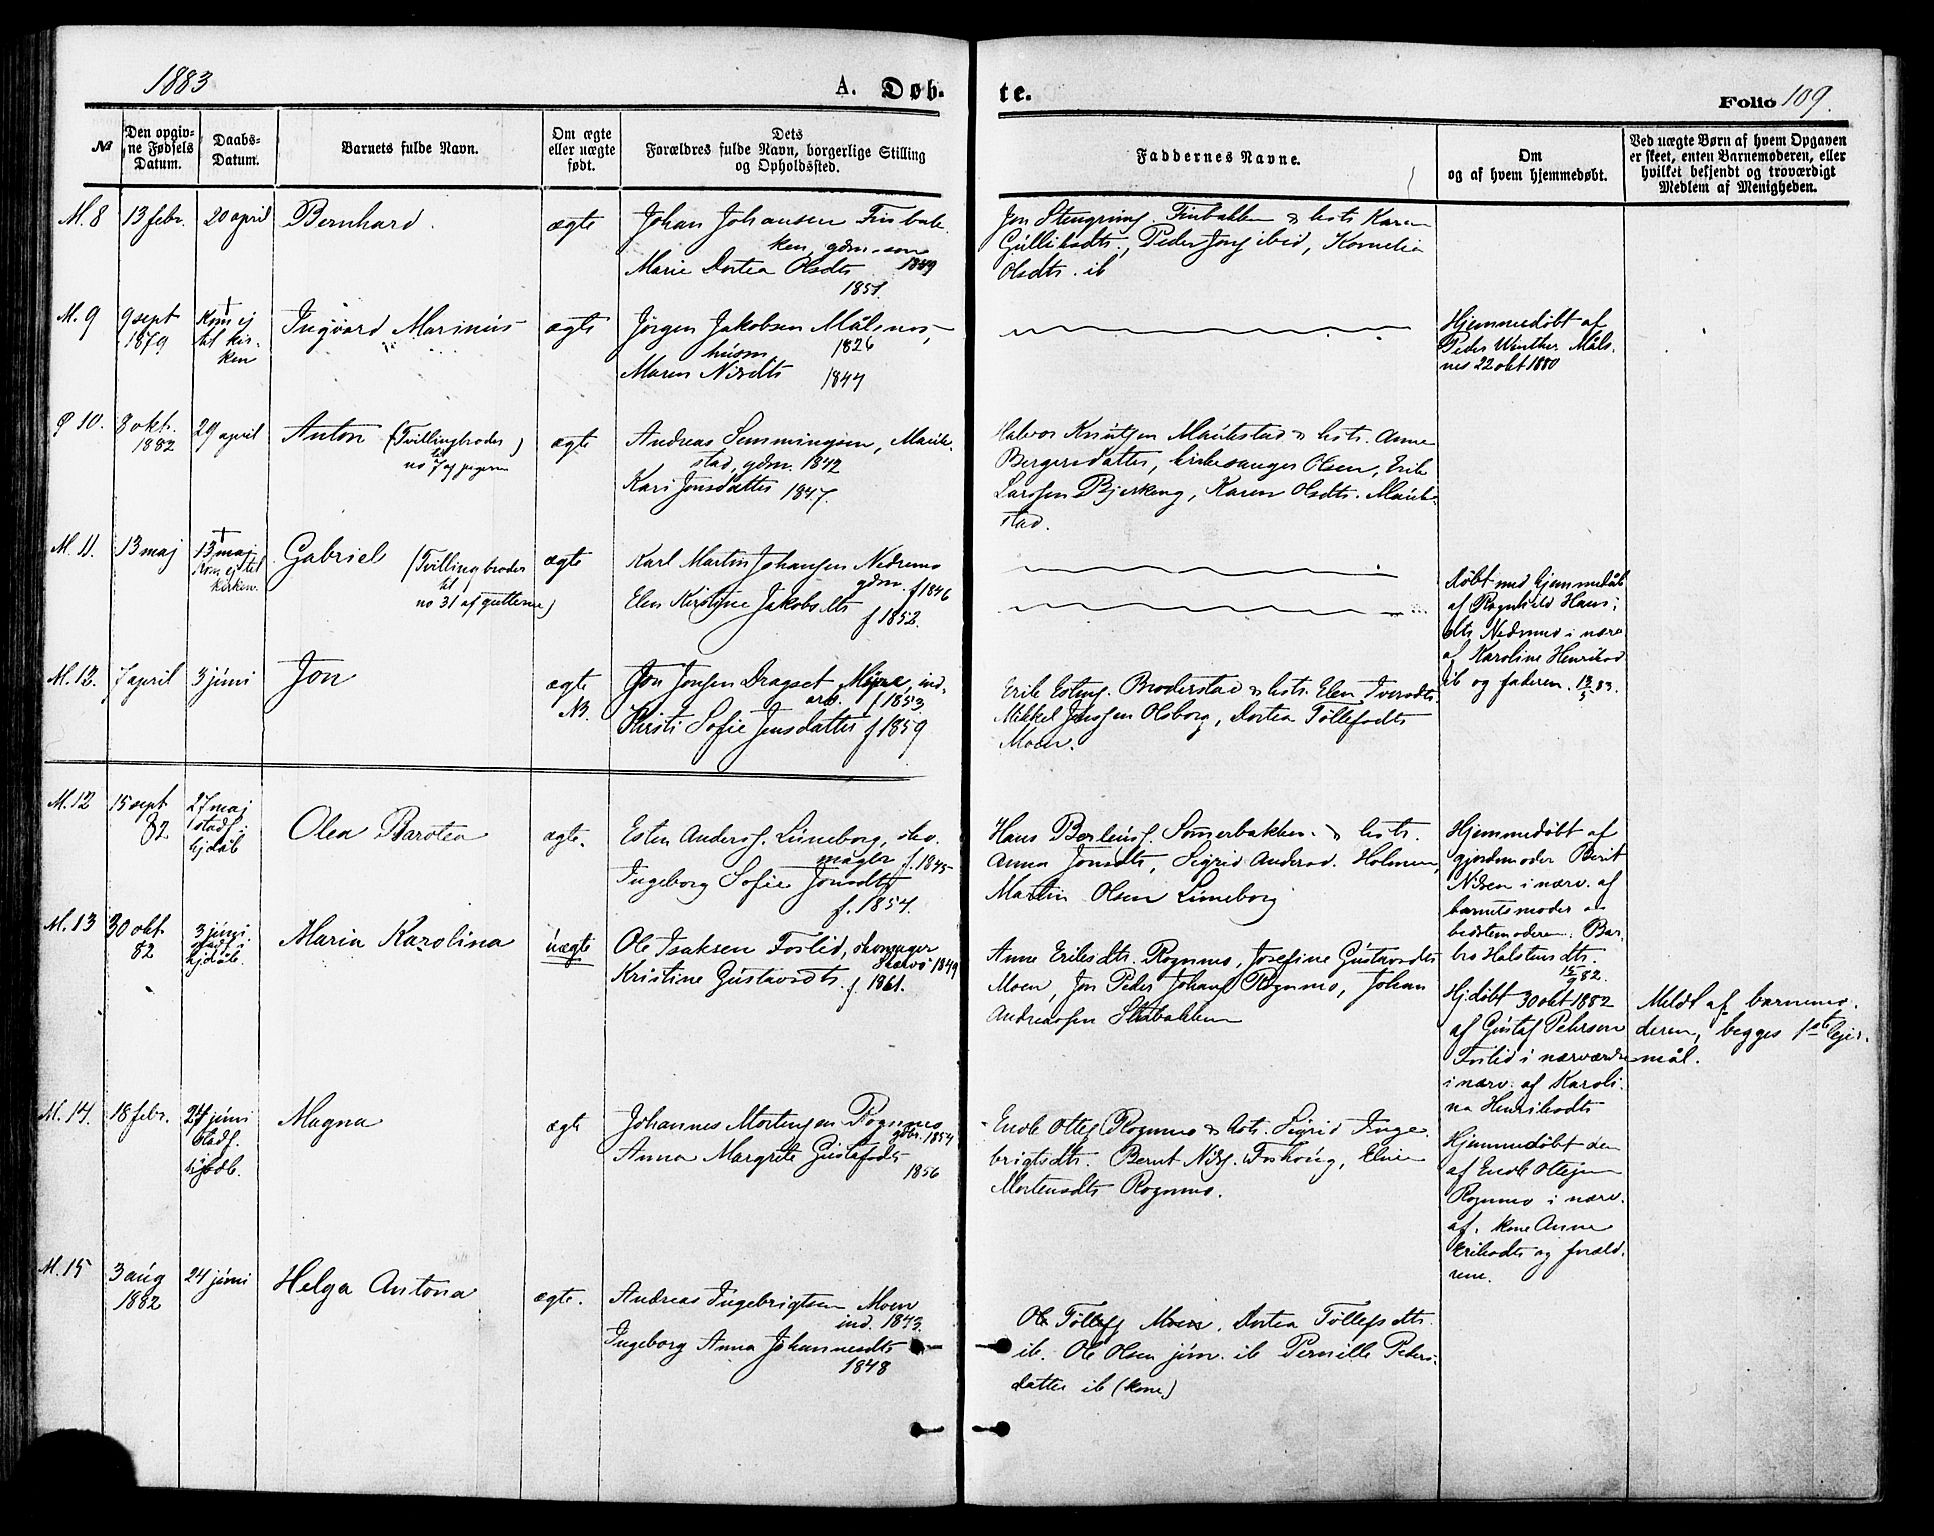 1883
A. Døb-
te.
Folio 109.
№
Den opgiv-
ne Fødsels
Datum.
Daabs-
Datum.
Barnets fulde Navn.
Om ægte
eller uægte
født.
Dets
Forældres fulde Navn, borgerlige Stilling
og Opholdssted.
Faddernes Navne.
Om
og af hvem hjemmedøbt.
Ved uægte Børn af hvem Opgaven
er skeet, enten Barnemoderen, eller
hvilket bekjendt og troværdigt
Medlem af Menigheden.
M. 8
13 febr.
20 april
Bernhard.
ægte
Johan Johansen Finbak-
ken, gdm.søn
1849
Marie Dortea Olsdtr
1851.
Jon Stengrims. Finbakken & hstr Karen
Gulliksdtr, Peder Jons ibid, Kornelia
Olsdtr. ib
M. 9
9 sept
1879
Kom ej
til kir-
ken
Ingvard Marinus
ægte
Jørgen Jakobsen Målsnes,
husm. 1826
Maren Nilsdtr 1847
Hjemmedøbt af
Peder Winther Måls-
nes 22 okt 1880
Ø 10.
8 okt.
1882
29 april
Anton (Tvillingbroder
til
no 7 af pigerne)
ægte
Andreas Semmingsen, Mauk-
stad, gdm. 1842
Kari Jonsdatter 1847.
Halvor Knutsen Maukstad & hstr. Anne
Bergersdatter, kirkesanger Olsen, Erik
Larssen Bjerkeng, Karen Olsdtr. Mauk-
stad.
M. 11.
13 maj
13 maj
Kom ej til
kirken.
Gabriel (Tvillingbroder
til
no 31 af gutterne)
ægte
Karl Martin Johansen Nedremo
gdm. f 1846
Elen Kirstine Jakobsdtr
f 1852.
Døbt med hjemmedåb
af Ragnhild Hans-
dtr Nedremo i nærv
af Karoline Henriksd
ib og faderen. 13/5 83.
M. 12.
7 april
3 juni
Jon
ægte
NB.
Jon Jonsen Dragset Moen, ind.
arb. f 1853
Kirsti Sofie Jensdatter f 1859
Erik Estens. Broderstad & hstr. Elen Iversdtr.
Mikkel Jenssen Olsborg, Dortea Tollefsdtr
Moen.
M. 12
15 sept
82
27 maj
stadf.
hjdåb
Olea Barotea
ægte.
Esten Anders. Luneborg, sko-
mager f. 1845
Ingeborg Sofie Jonsdtr
f. 1854.
Hans Berteus. Somerbakken & hstr.
Anna Jonsdtr, Sigrid Andersd. Holmen,
Martin Olsen Luneborg
Hjemmedøbt af
gjordemoder Berit
Nilsen i nærv. af
barnets moder og
bedstemoderen. Bar-
bro Halstensdtr.
15/9 82.
M. 13
30 okt.
82
3 juni
stadf.
hjdåb.
Maria Karolina
uægte
Ole Isaksen Foslid, skomager
1849
Kristine Gustavsdtr. f. 1861.
Anne Eriksdtr. Rognmo, Josefine Gustavsdtr
Moen, Jon Peder Johans Rognmo, Johan
Andreassen
Hjdøbt 30 okt 1882
af Gustaf Pehrson
Foslid i nærværelse
i nærv. af Karoli-
na Henriksdtr
Meldt af barnemo-
deren, begges 1ste lejer-
mål.
M. 14.
18 febr.
24 juni
stadf.
hjdåb.
Magna
ægte
Johannes Mortensen Rognmo
gdbr. 1854
Anna Margrete Gustafsdtr
1856
Endk Ottes Rognmo & hstr. Sigrid Inge-
brigtsdtr. Bernt Nils. Foshoug, Eline
Mortensdtr Rognmo.
Hjemmedøbt den
af Endk Ottesen
Rognmo i nærv.
af kone Anne
Eriksdtr og foræld-
rene.
M. 15
3 aug
1882
24 juni
Helga Antona
ægte.
Andreas Ingebrigtsen Moen
ind. 1843
Ingeborg Anna Johannesdtr
1848
Ole Tollefs Moen. Dortea Tollefsdtr.
ib. Ole Olsen jun. ib Pernille Peders-
datter ib (kone)